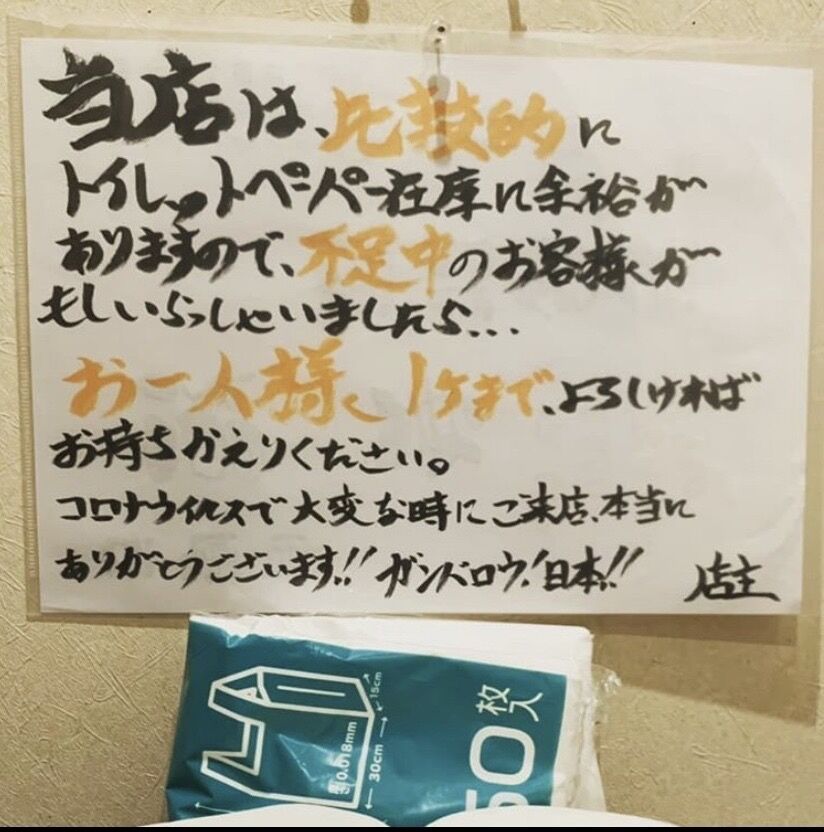 当店は、比較的に
トイレットペーパー在庫に余裕が
ありますので、不足中のお客様が
もしいらっしゃいましたら...
お一人様、1ケまで、よろしければ
お持ちかえりください。
コロナウイルスで大変な時にご来店、本当に
ありがとうございます!! ガンバロウ!日本!!
店主
15cm
0.018mm
30cm
50
枚入